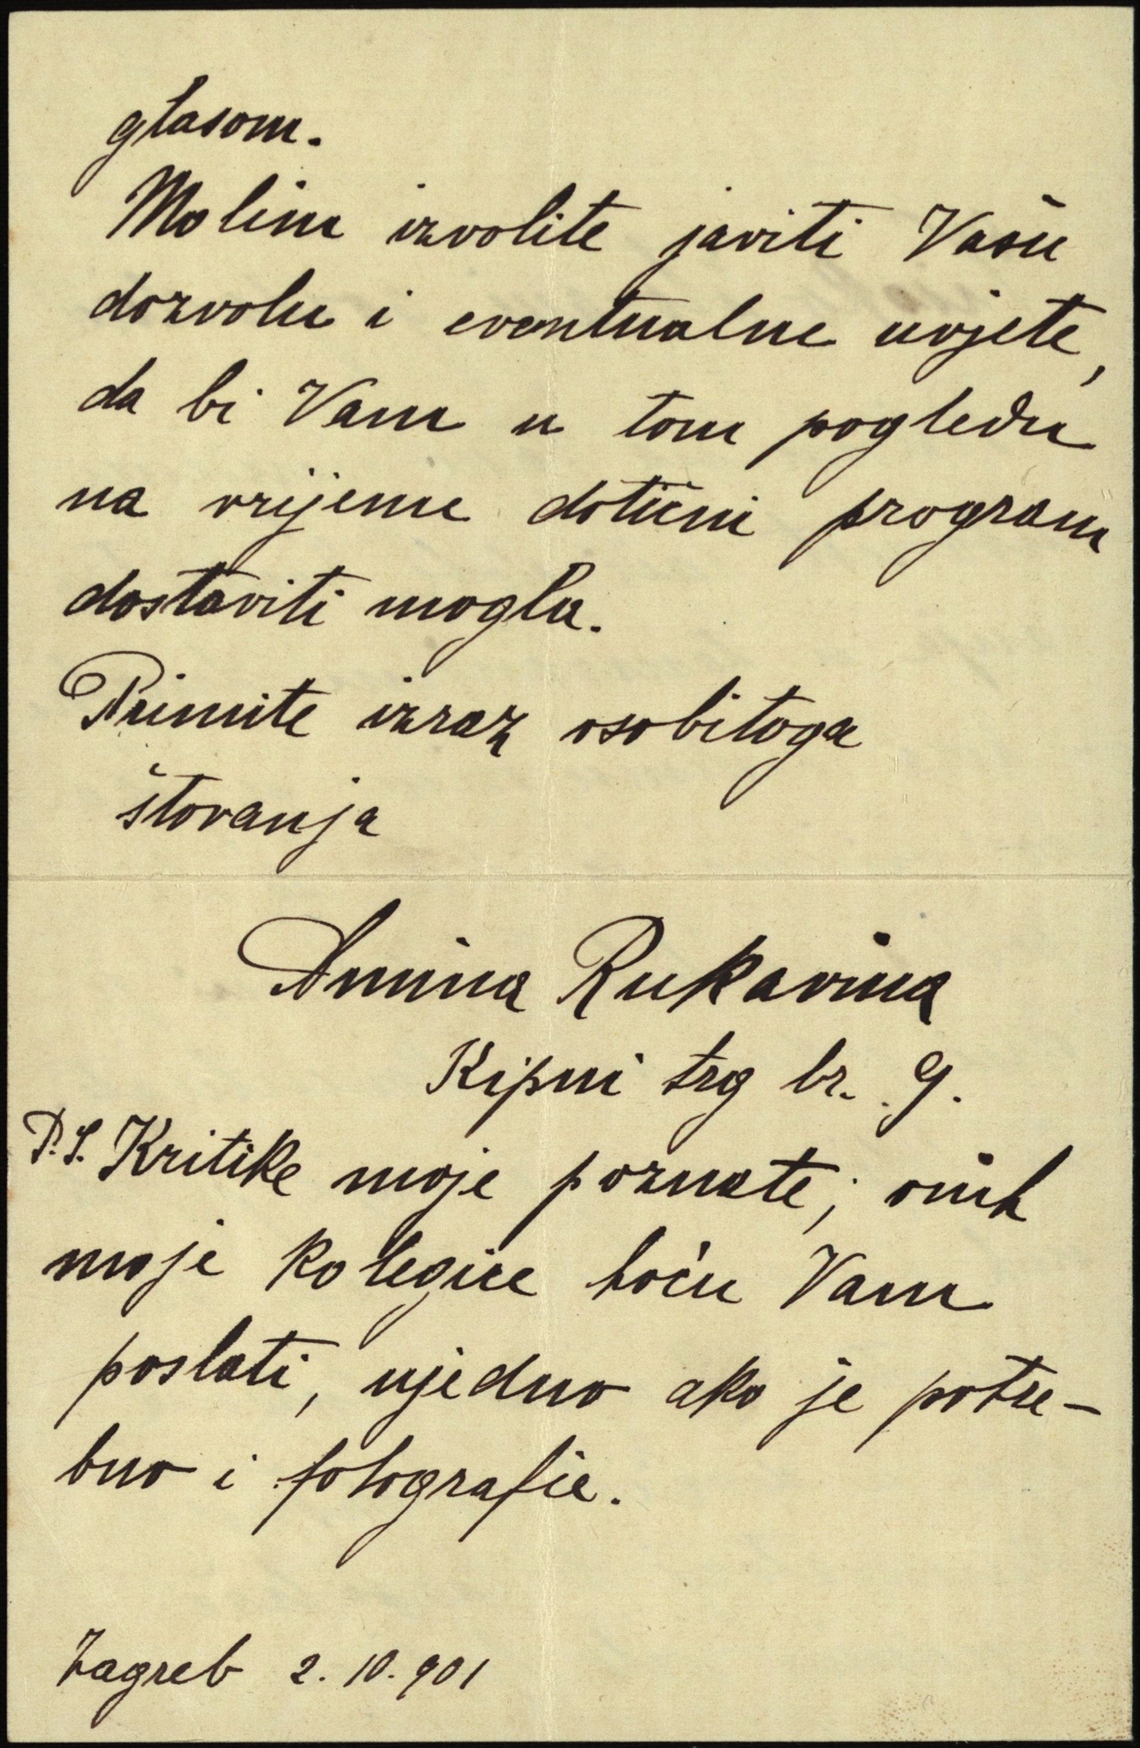 glasom.
Molim izvolite javiti Vašu
dozvolu i eventualne uvjete,
da bi Vam u tom pogledu
na vrijeme dotični program
dostaviti mogla.
Primite izraz osobitoga
štovanja
Amina Rukavina
Kipni trg br. 9.
P.S. Kritike moje poznate; onih
moje kolegice hoću Vam
poslati, ujedno ako je potre-
bno i fotografie.
Zagreb 2. 10. 901